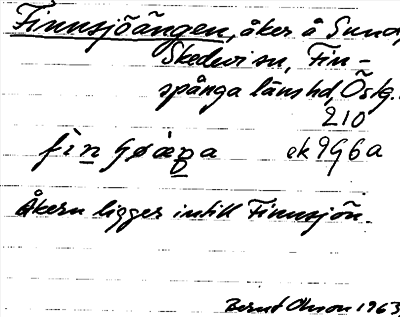 Finnsjöängen, åker å Sund,
Skedevi sn, Fin-
spånga läns hd, Östg.
210
ek 9g6a
Åkern ligger intill Finnsjön.
Bernt Olsson 1963